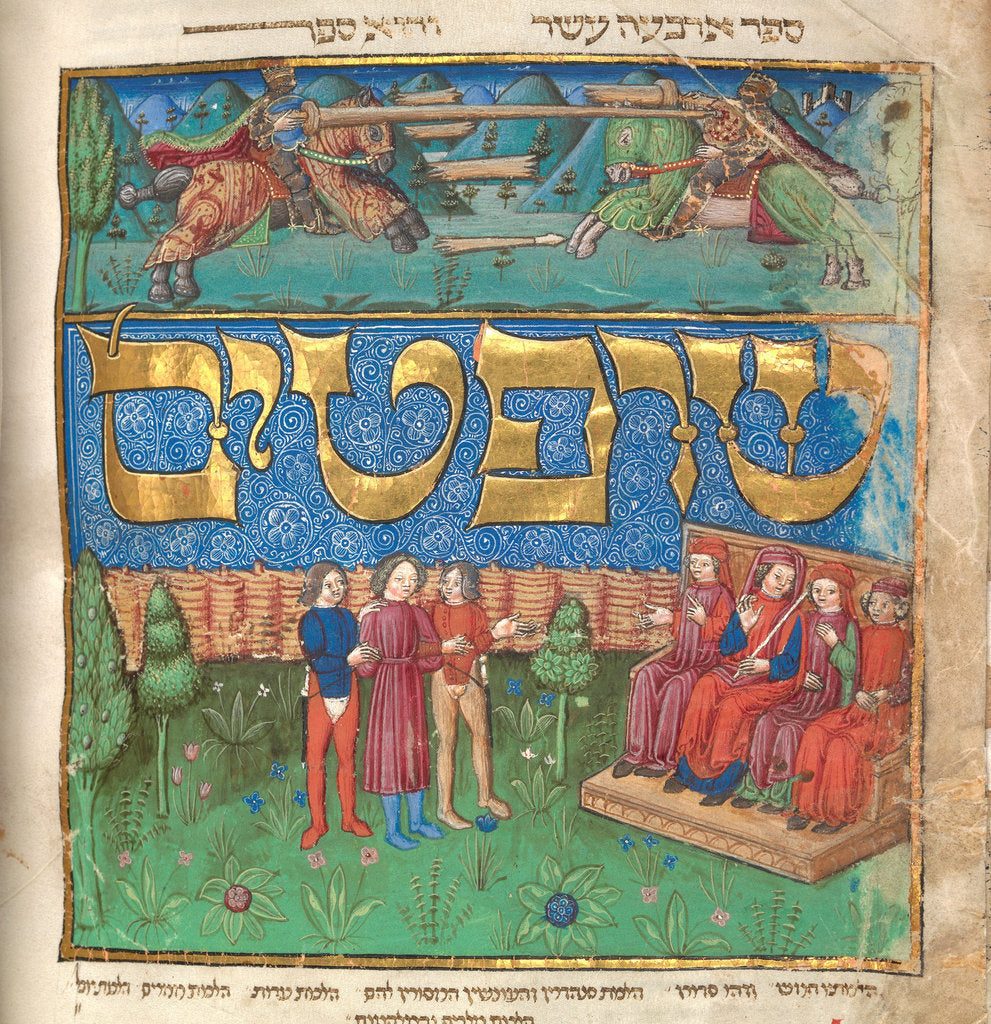 ספר ארבעה עשר והוא ספר
שופטים
הלכותיו חמש וזהו סדורן הלכות סנהדרין והעונשין המסורין להם הלכות עדות הלכות ממרים
הלכות מלכים ומלחמות